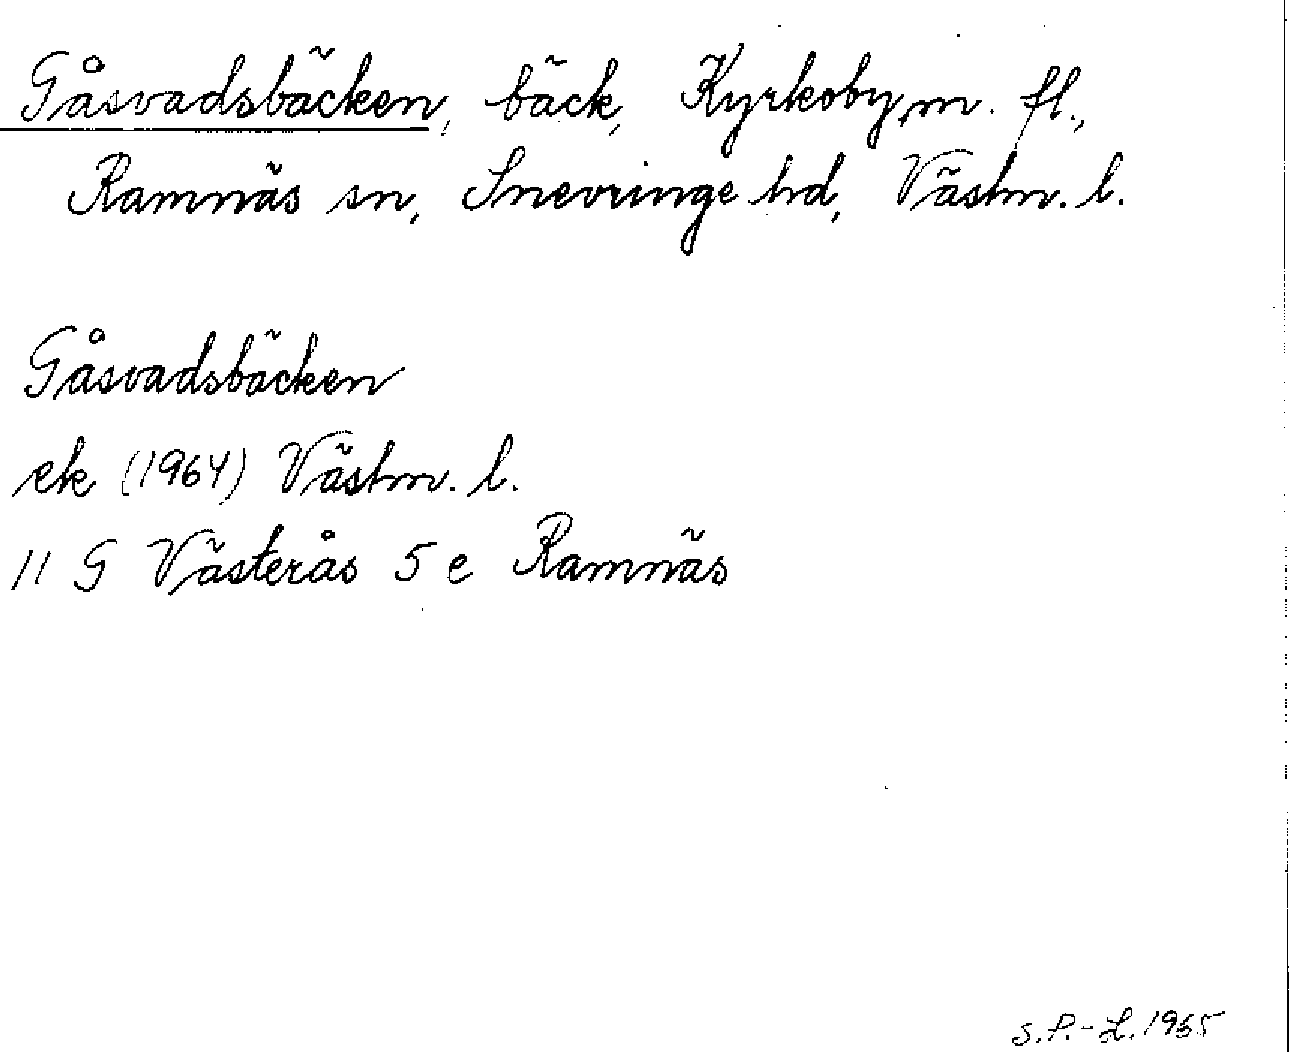 Gåsvadsbäcken, bäck, Kyrkoby m. fl.,
Ramnäs sn, Snevringe hd, Västm. l.
Gåsvadsbäcken
ek (1964) Västm. l.
11 G Västerås 5 e Ramnäs
S.P.-L. 1965